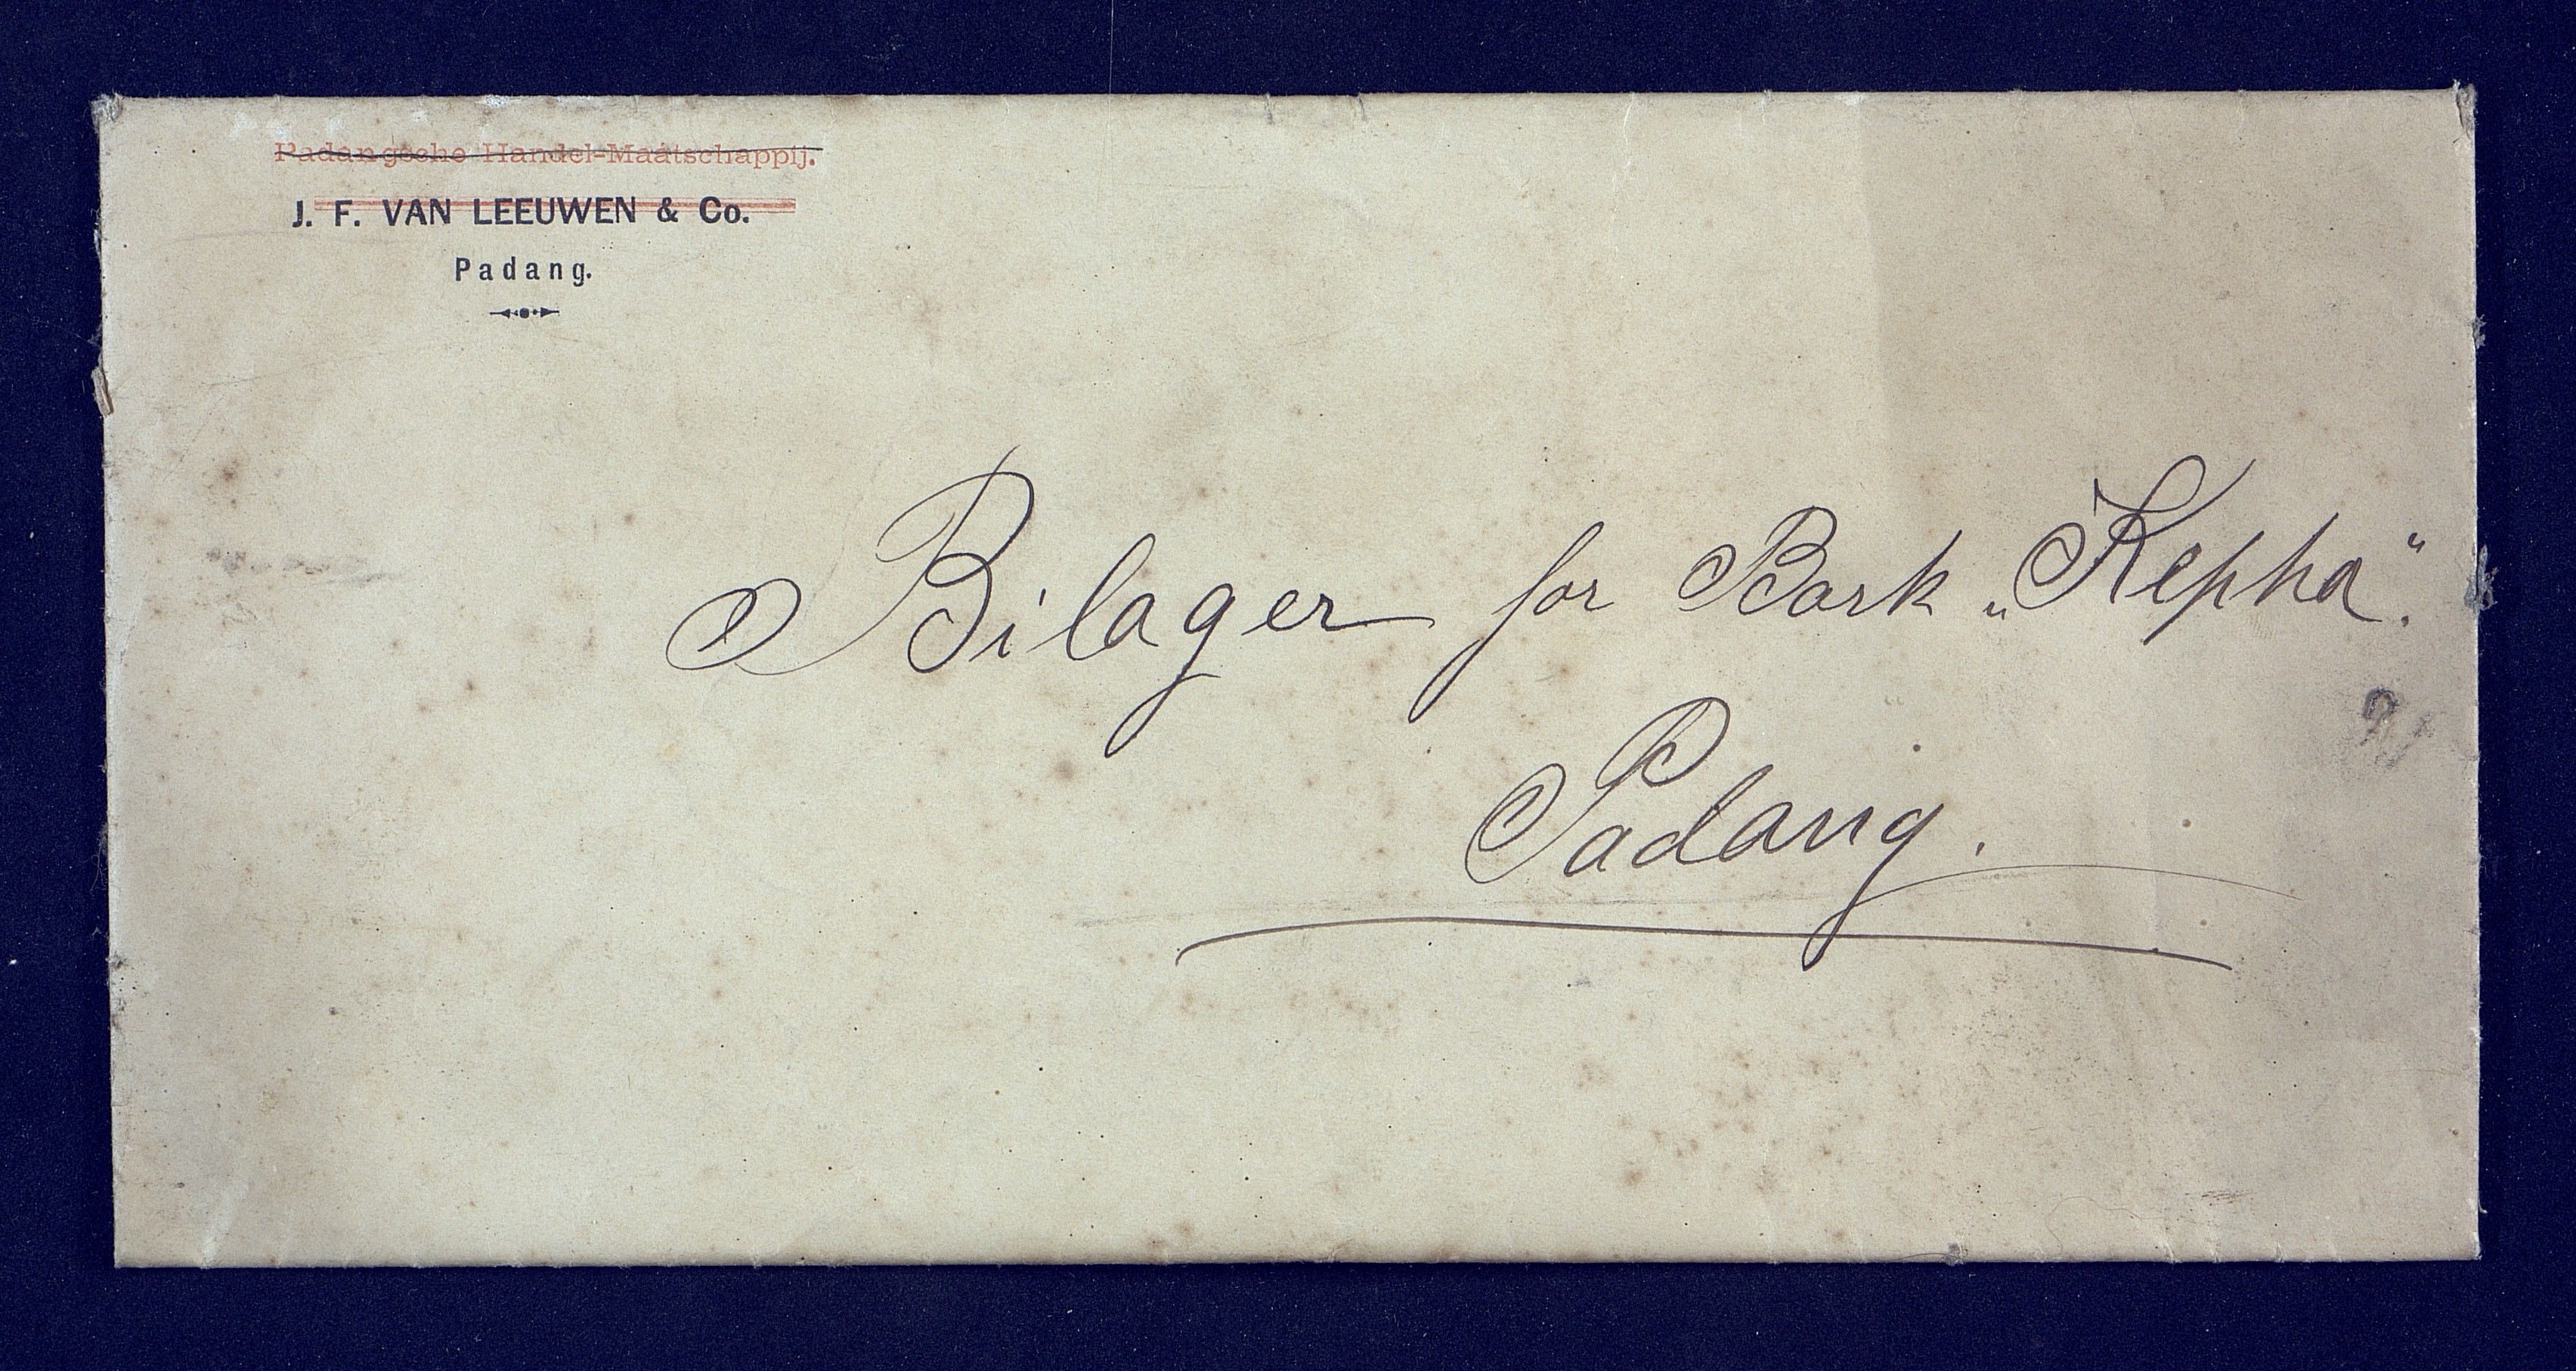 Padangsche Handel-Maatschappij.
J. F. VAN LEEUWEN & Co.
Padang.
Bilager for Bark „Kepha“.
Padang.